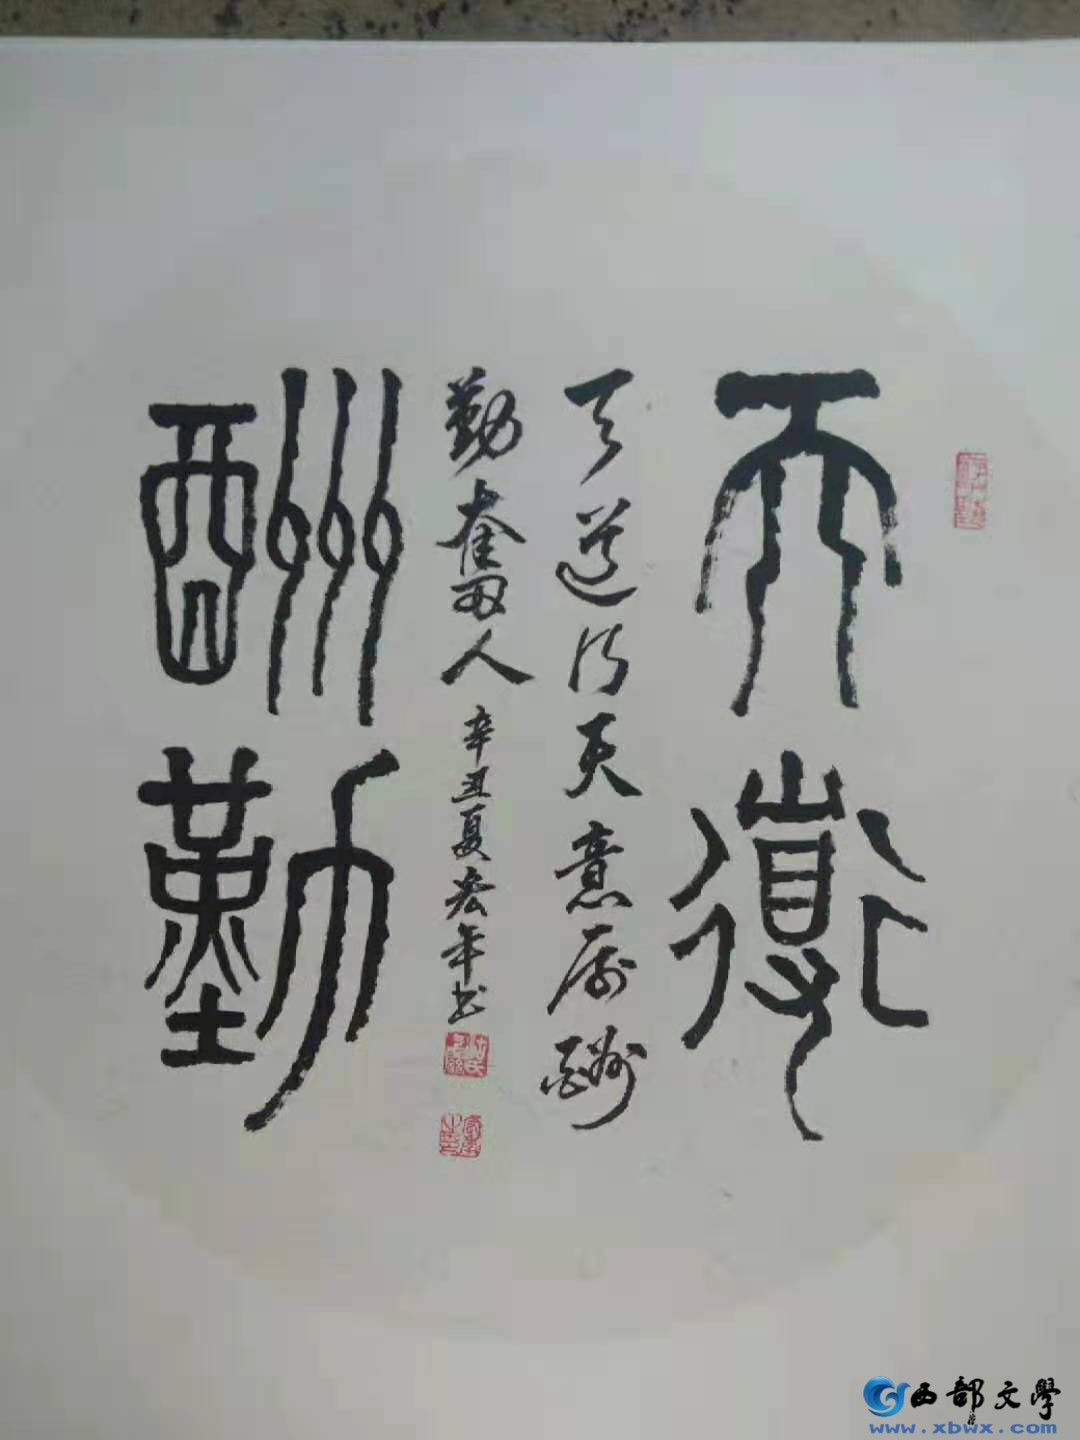 天道
天道天意酬
勤奮人 辛丑夏宏年书
酬勤
西部文學
www.xbwx.com